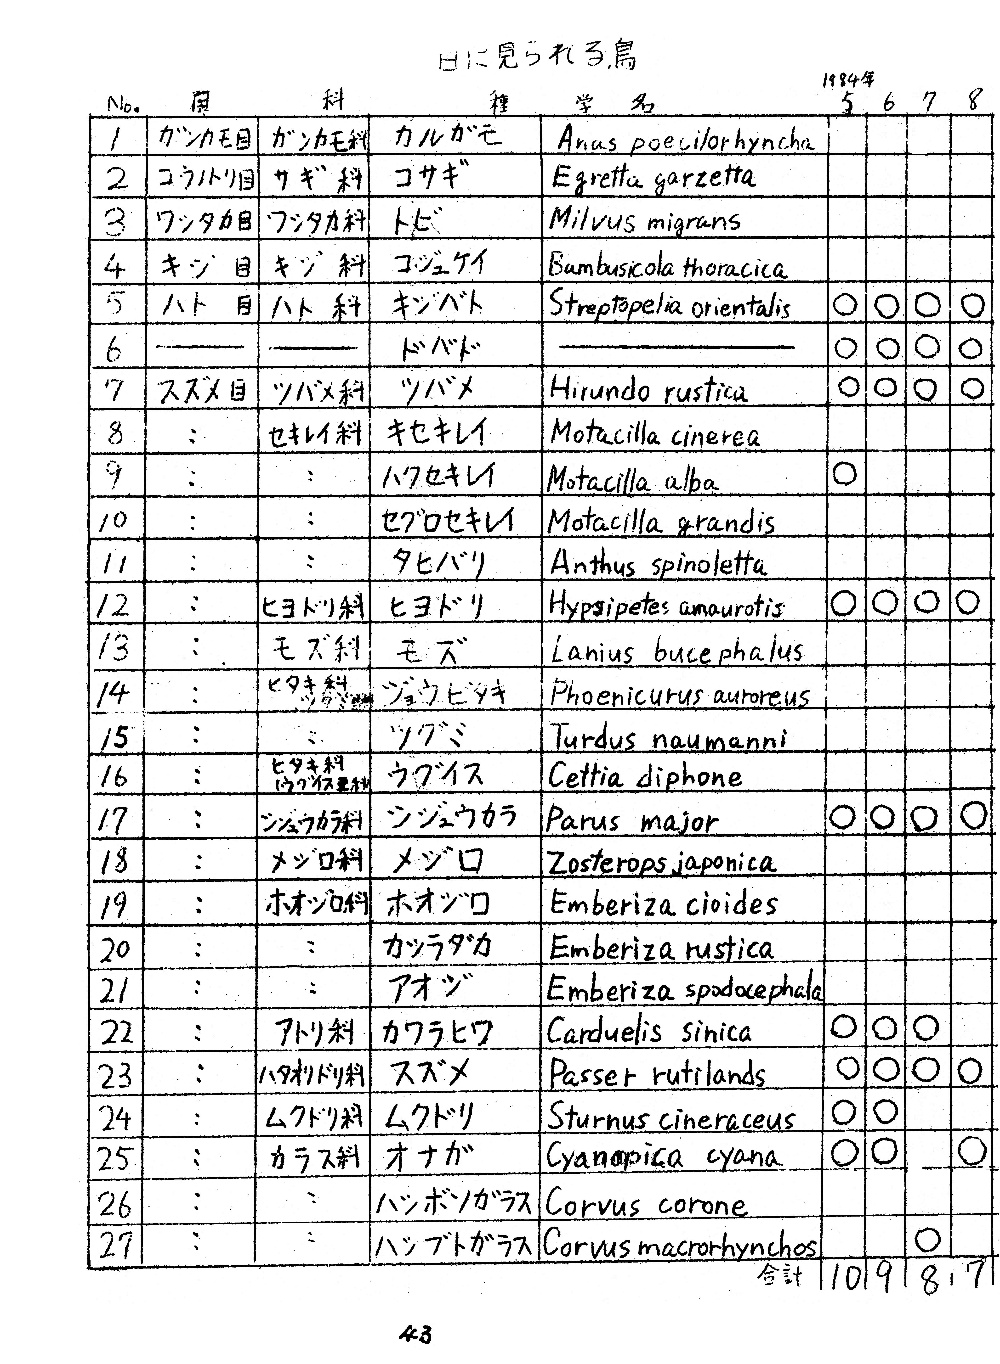 日に見られる鳥
1984年
No. 目 科 種 学名 5 6 7 8
1 ガンカモ目 ガンカモ科 カルガモ Anas poecilorhyncha
2 コウノトリ目 サギ科 コサギ Egretta garzetta
3 ワシタカ目 ワシタカ科 トビ Milvus migrans
4 キジ目 キジ科 コジュケイ Bambusicola thoracica
5 ハト目 ハト科 キジバト Streptopelia orientalis ○ ○ ○ ○
6 ── ── ドバド ── ○ ○ ○ ○
7 スズメ目 ツバメ科 ツバメ Hirundo rustica ○ ○ ○ ○
8 : セキレイ科 キセキレイ Motacilla cinerea
9 : : ハクセキレイ Motacilla alba ○
10 : : セグロセキレイ Motacilla grandis
11 : : タヒバリ Anthus spinoletta
12 : ヒヨドリ科 ヒヨドリ Hypsipetes amaurotis ○ ○ ○ ○
13 : モズ科 モズ Lanius bucephalus
14 : ヒタキ科 ジョウビタキ Phoenicurus auroreus
15 : : ツグミ Turdus naumanni
16 : ヒタキ科 ウグイス亜科 ウグイス Cettia diphone
17 : シジュウカラ科 シジュウカラ Parus major ○ ○ ○ ○
18 : メジロ科 メジロ Zosterops japonica
19 : ホオジロ科 ホオジロ Emberiza cioides
20 : : カシラダカ Emberiza rustica
21 : : アオジ Emberiza spodocephala
22 : アトリ科 カワラヒワ Carduelis sinica ○ ○ ○
23 : ハタオリドリ科 スズメ Passer rutilands ○ ○ ○ ○
24 : ムクドリ科 ムクドリ Sturnus cineraceus ○ ○
25 : カラス科 オナガ Cyanopica cyana ○ ○ ○
26 : : ハシボソガラス Corvus corone
27 : : ハシブトガラス Corvus macrorhynchos ○
合計 10 9 8 7
43